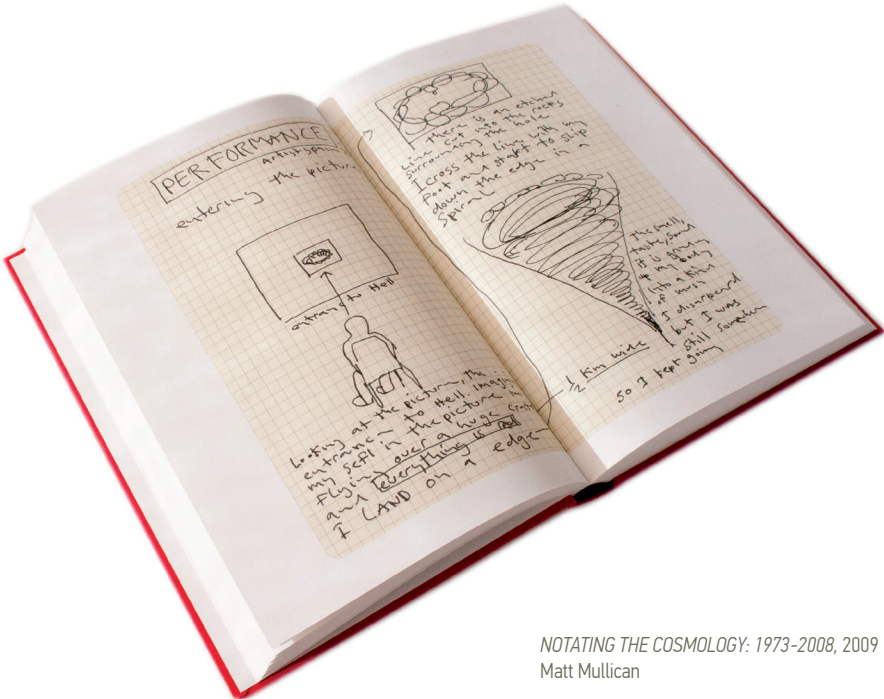 PERFORMANCE
Artists
entering the picture
entrans to Hell
Looking at the picture, the
entrance to Hell. Imagin
my sefl in the picture
flying over a huge crater
and everything is red
I LAND on a edge
there is an etched
line cut into the rocks
surrounding the hole
I cross the line with my
foot and start to slip
down the edge in a
spiral
the smell,
taste, sound
it is
my body
into a kind
of mush
I disapeard
but I was
still something
so I kept going
½ km wide
NOTATING THE COSMOLOGY: 1973-2008, 2009
Matt Mullican